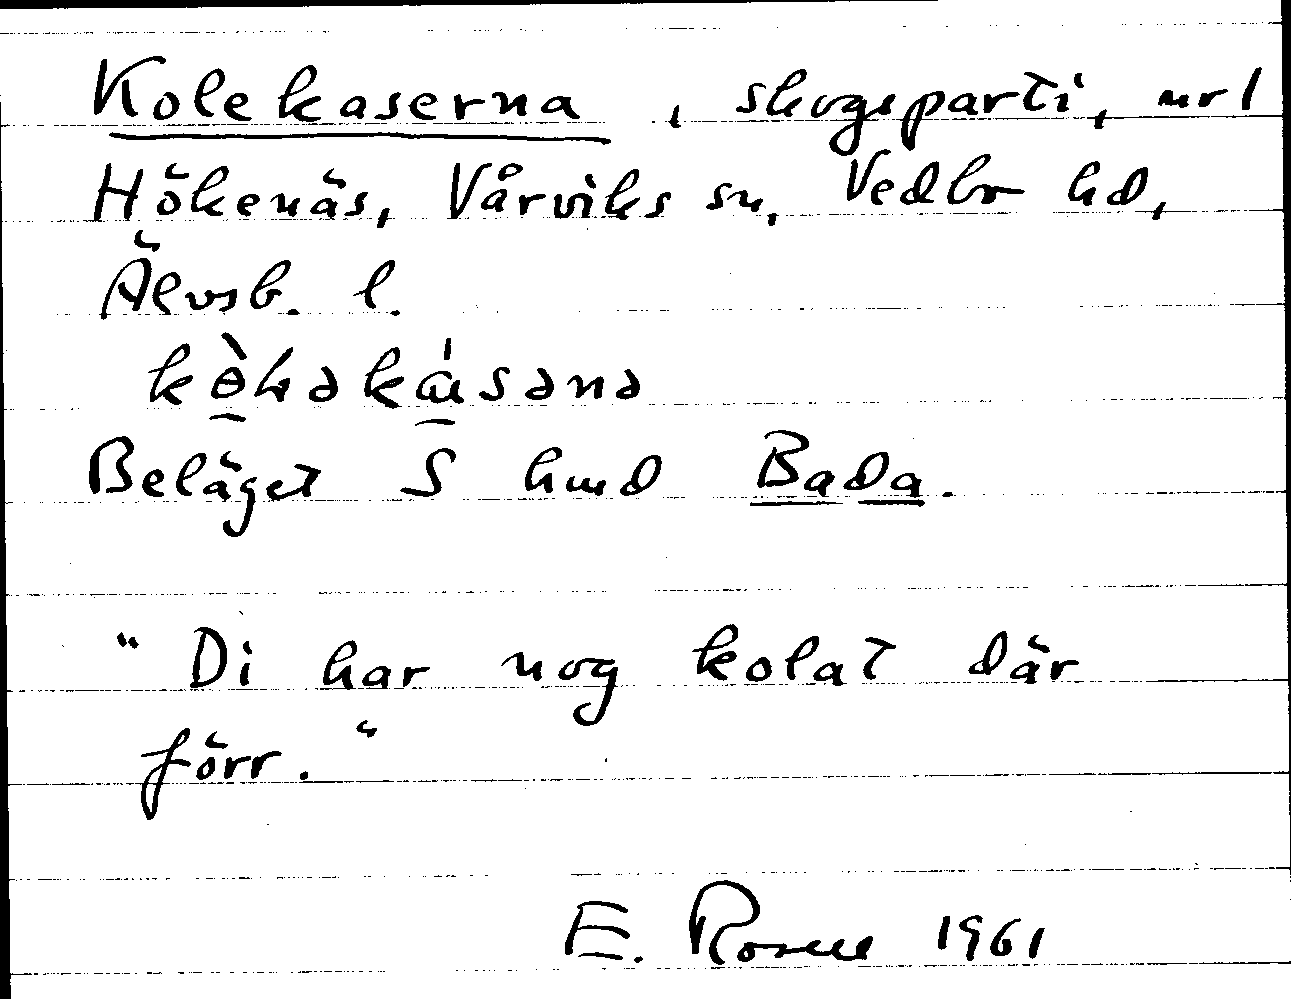 Kolekaserna, skogsparti, nr 1
Hökenäs, Vårviks sn, Vedbo hd,
Älvsb. l.
Beläget S hmd Bada.
"Di har nog kolat där
förr."
E. 1961